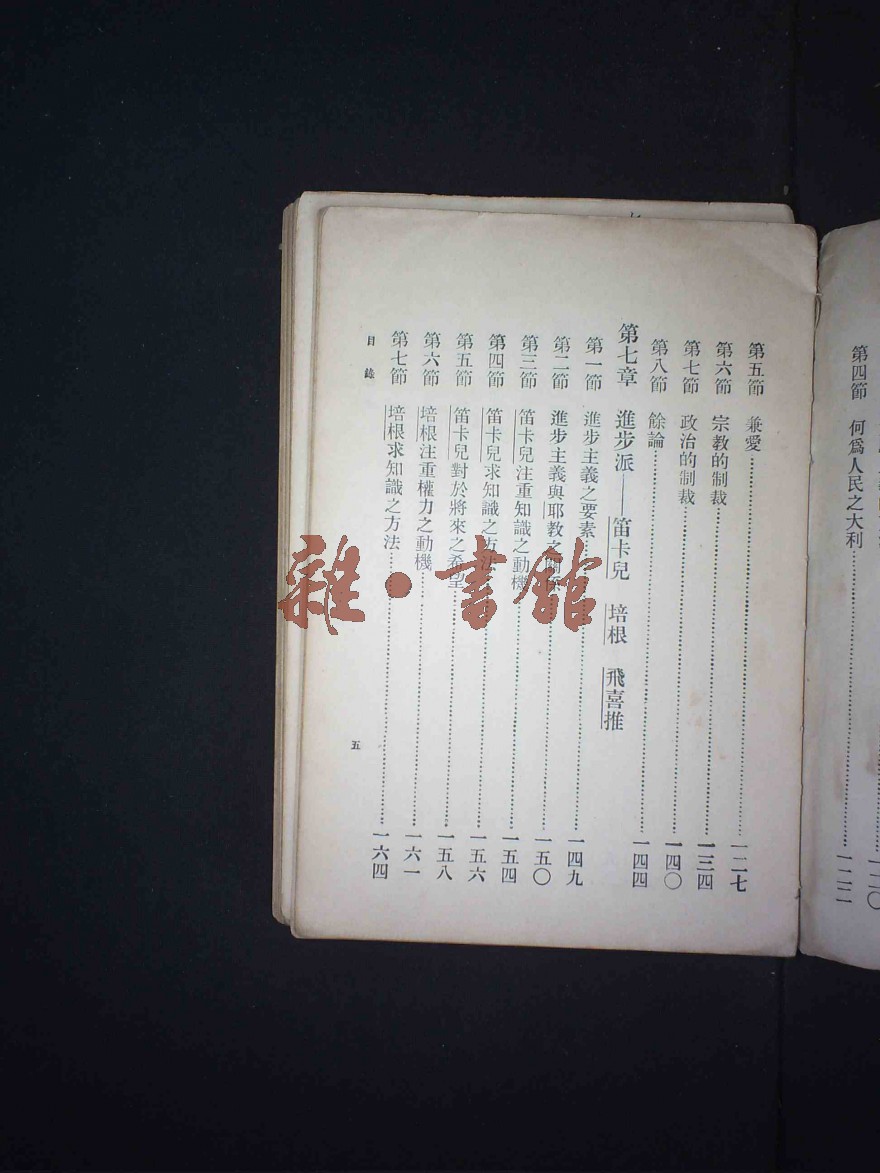 第四節 何爲人民之大利……一二二
第五節 兼愛……一二七
第六節 宗教的制裁……一三四
第七節 政治的制裁……一四〇
第八節 餘論……一四四
第七章 進步派——笛卡兒 培根 飛喜推
第一節 進步主義之要素……一四九
第二節 進步主義與耶教之關係……一五〇
第三節 笛卡兒注重知識之動機……一五四
第四節 笛卡兒求知識之方法……一五六
第五節 笛卡兒對於將來之希望……一五八
第六節 培根注重權力之動機……一六一
第七節 培根求知識之方法……一六四
目錄
五
雜·書館